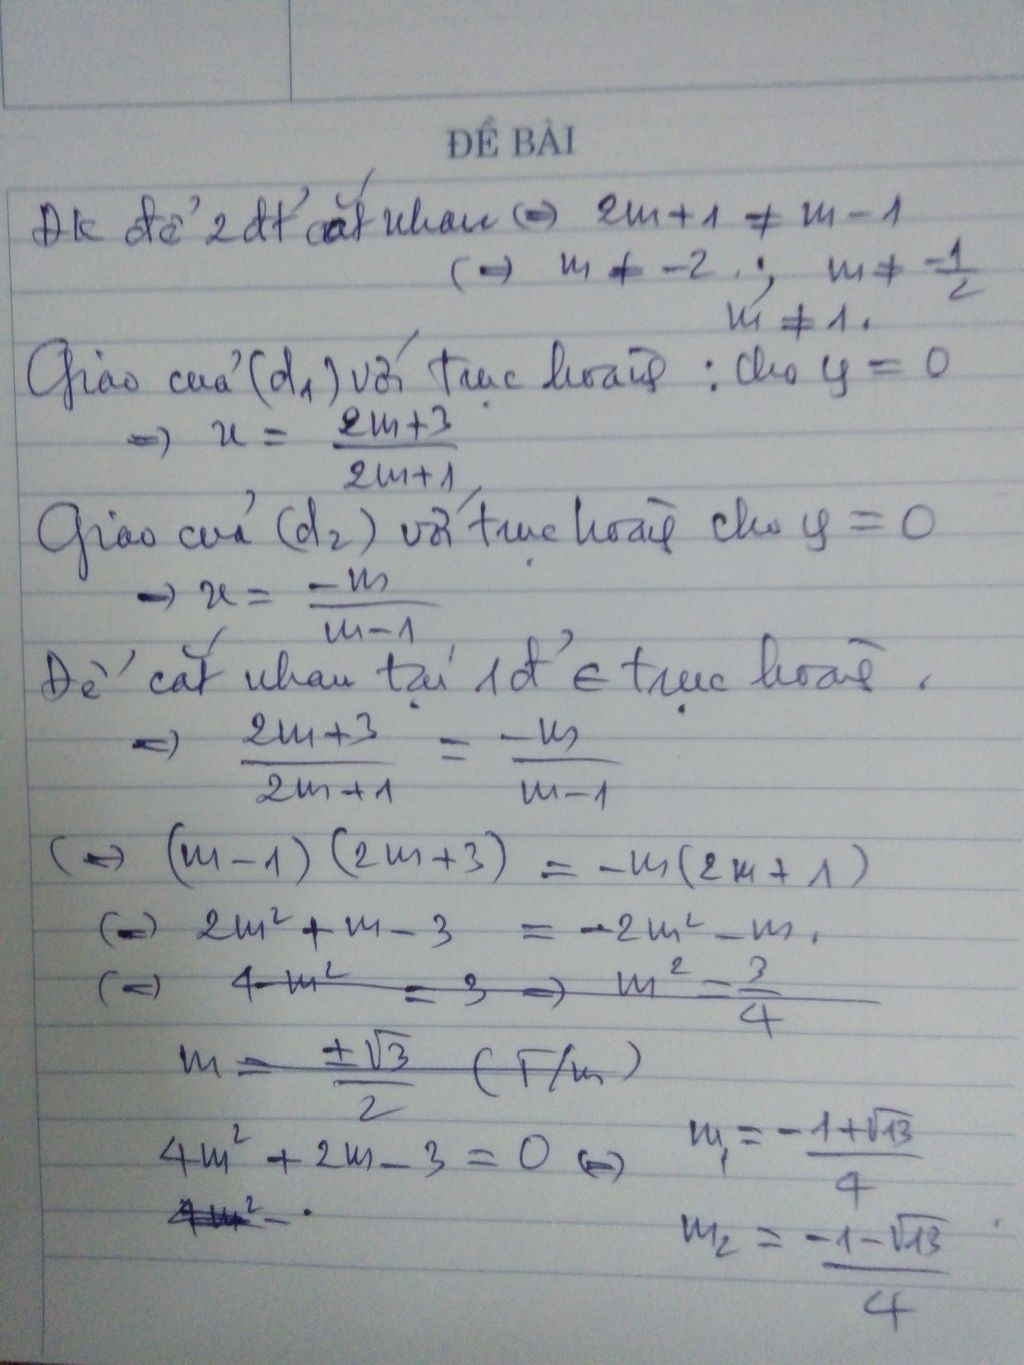 ĐỀ BÀI
Đk để 2 đt cắt nhau (=) 2m+1 ≠ m-1
(=) m ≠ -2 ; m ≠ -1/2
m ≠ 1.
Giao của (d1) với trục hoành : cho y = 0
=) x = 2m+3/2m+1
Giao của (d2) với trục hoành cho y = 0
=) x = -m/m-1
Để cắt nhau tại 1 đ' ∈ trục hoành.
=) 2m+3/2m+1 = -m/m-1
(=) (m-1)(2m+3) = -m(2m+1)
(=) 2m² + m - 3 = -2m² - m.
(=) 4m² = 3 =) m² = 3/4
m = ±√3/2 (T/m)
4m² + 2m - 3 = 0 (=) m1 = -1+√13/4
4m² -
m2 = -1-√13/4